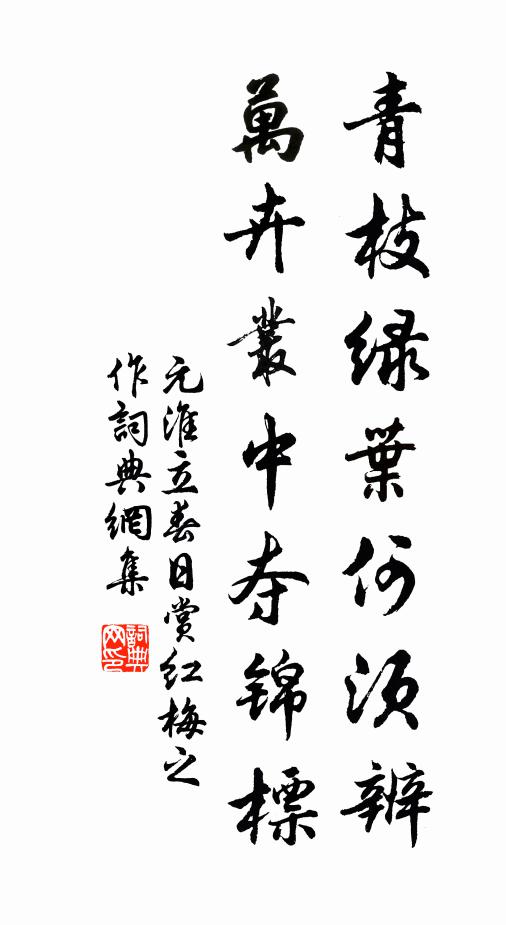 青枝绿葉何須辨
萬卉叢中夺锦標
元淮立春日赏红梅之
作詞典網集
詞典網印